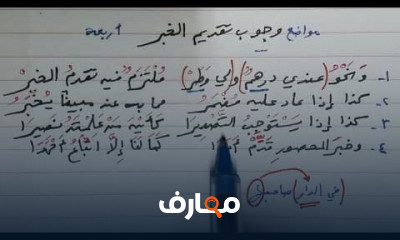 مواضع وجوب تقديم الخبر أربعة
١- ونحو (عندي درهم) و(لي وطر) ملتزم فيه تقدم الخبر
٢- كذا إذا عاد عليه مضمر مما به عنه مبينا يخبر
٣- كذا إذا يستوجب التصديرا كأين من علمته نصيرا
٤- وخبر المحصور قدم أبدا كما لنا إلا اتباع أحمدا
(في الدار) صاحبها
معارف